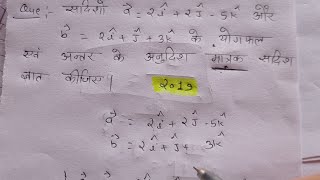 Que:- सदिशों a⃗ = 2î + 2ĵ - 5k̂ और
b⃗ = 2î + ĵ + 3k̂ के योगफल
एवं अन्तर के अनुदिश मात्रक सदिश
ज्ञात कीजिए। 2019
a⃗ = 2î + 2ĵ - 5k̂
b⃗ = 2î + ĵ + 3k̂